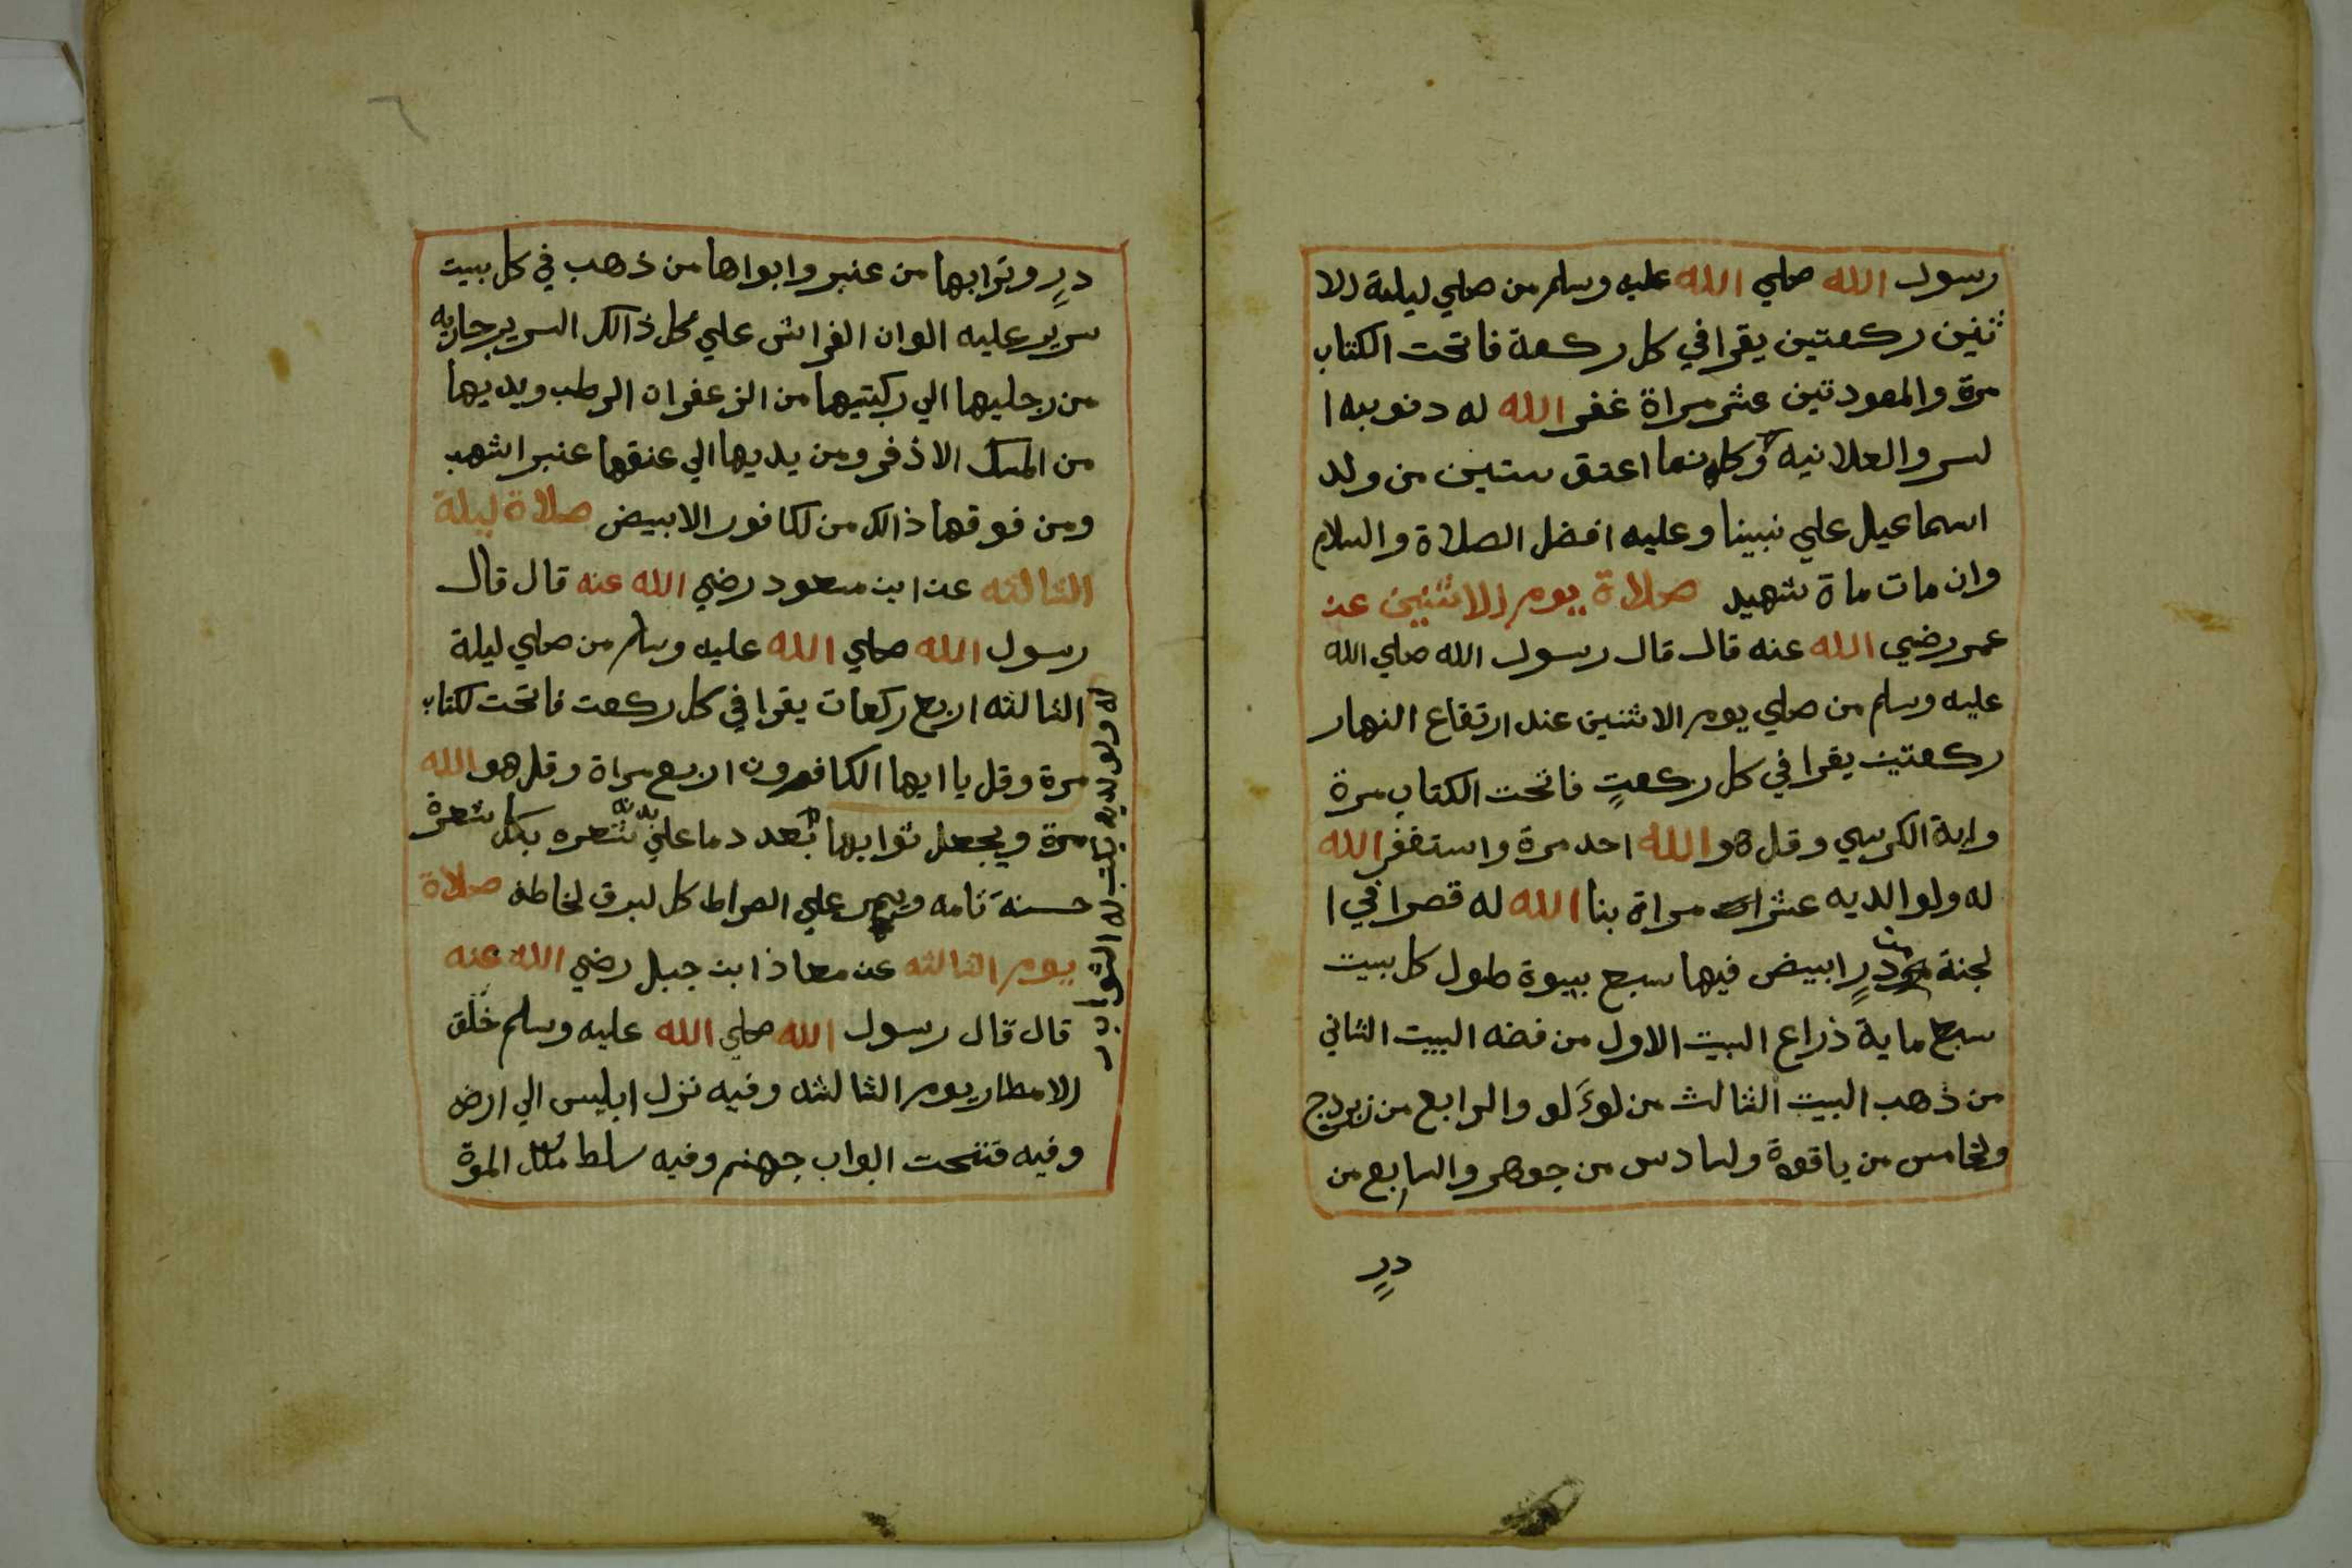 رسول الله صلي الله عليه وسلم من صلي ليلة الا
ثنين ركعتين يقرا في كل ركعة فاتحت الكتاب
مرة والمعودتين عشر مراة غفر الله له دنوبه ا
لسر والعلانيه وكانما اعتق ستين من ولد
اسماعيل علي نبينا وعليه افضل الصلاة والسلام
وان مات ماة شهيد صلاة يوم الاثنين عن
عمر رضي الله عنه قال قال رسول الله صلي الله
عليه وسلم من صلي يوم الاثنين عند ارتفاع النهار
ركعتين يقرا في كل ركعتٍ فاتحت الكتاب مرة
واية الكرسي وقل هو الله احد مرة واستغفر الله
له ولوالديه عشر مراة بنا الله له قصرا في ا
لجنة من درٍ ابيض فيها سبع بيوة طول كل بيت
سبع ماية ذراع البيت الاول من فضه البيت الثاني
من ذهب البيت الثالث من لوَلو والرابع من زبردج
ولخامس من ياقوة ولسادس من جوهر والسابع من
درٍ
درٍ وترابها من عنبر وابوابها من ذهب في كل بيت
سرير عليه الوان الفراش علي كل ذالك السرير جاريه
من رجليها الي ركبتيها من الزعفران الرطب ويديها
من المسك الاذفر ومن يديها الي عنقها عنبر اشهب
ومن فوقها ذالك من لكافور الابيض صلاة ليلة
الثالثه عن ابن مسعود رضي الله عنه قال قال
رسول الله صلي الله عليه وسلم من صلي ليلة
الثالثه اربع ركعات يقرا في كل ركعت فاتحت لكتاب
مرة وقل يا ايها الكافرون اربع مراة وقل هو الله
مرة ويجعل ثوابها بعدد ما علي بدنه شعره بكل شعرة
حسنة تامه ويمر علي الصراط كل لبرق لخاطف صلاة
يوم الثالثه عن معاذ ابن جبل رضي الله عنه
قال قال رسول الله صلي الله عليه وسلم خلق
الامطار يوم الثالثه وفيه نزل ابليس الي ارض
وفيه فتحت ابواب جهنم وفيه سلط ملك الموة